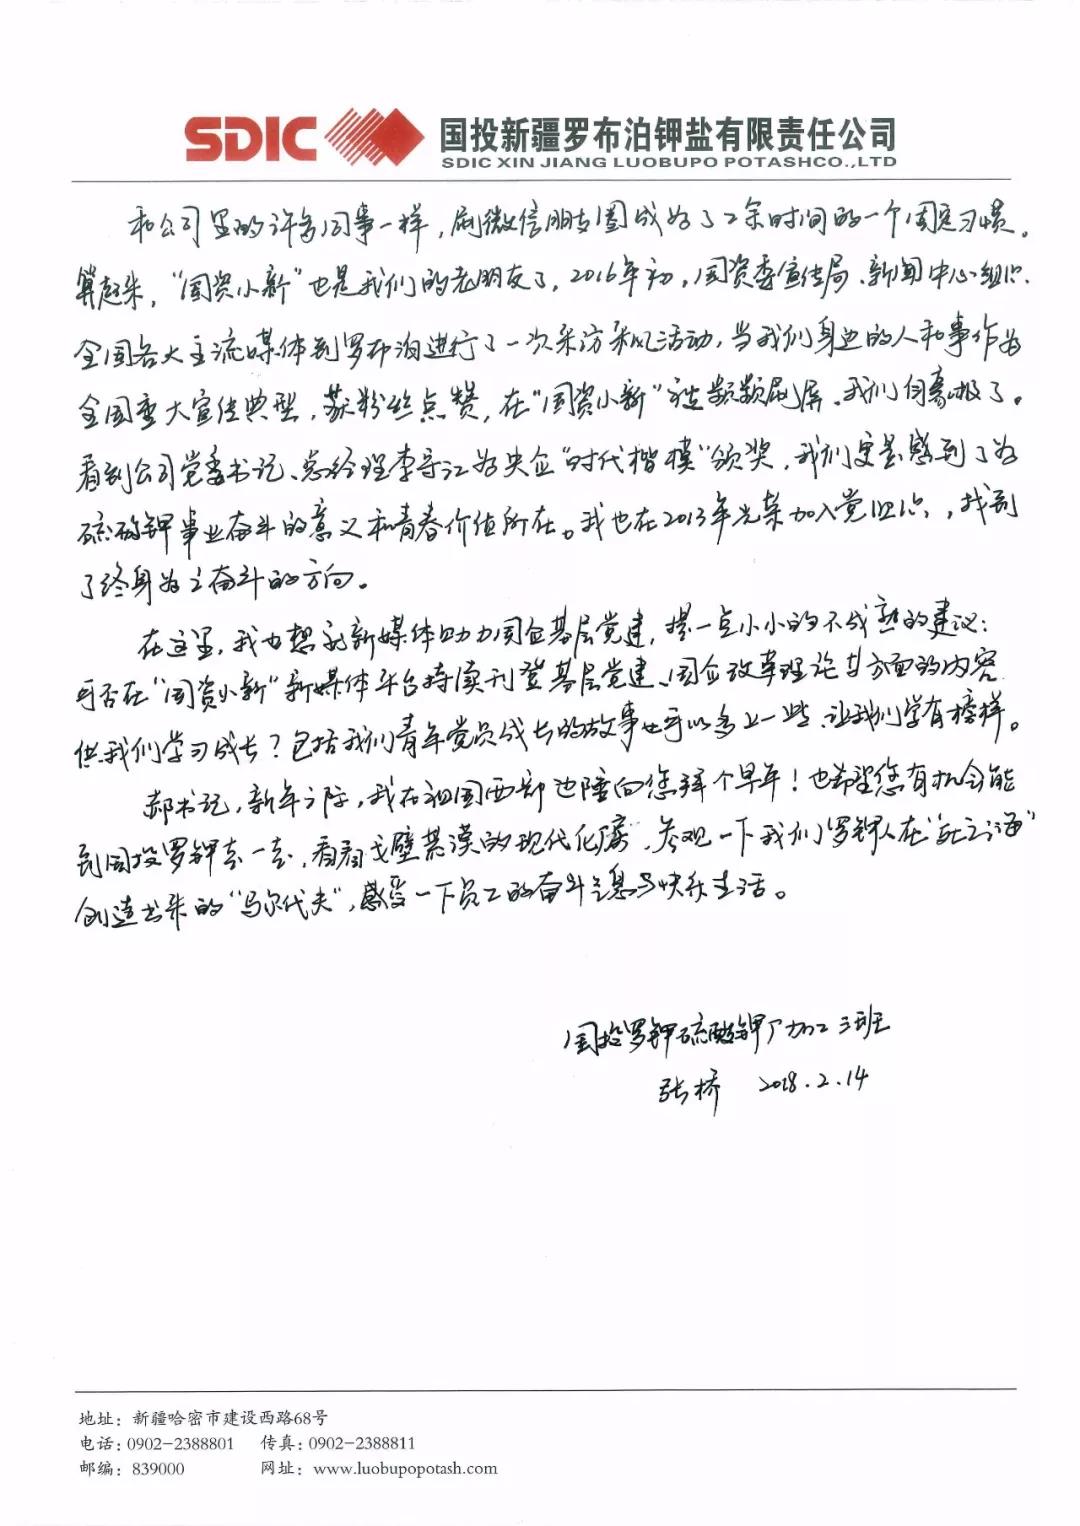 SDIC 国投新疆罗布泊钾盐有限责任公司
SDIC XIN JIANG LUOBUPO POTASHCO.,LTD
和公司里的许多同事一样，刷微信朋友圈成为了工余时间的一个固定习惯。
算起来，“国资小新”也是我们的老朋友了，2016年初，国资委宣传局、新闻中心组织
全国各大主流媒体到罗布泊进行了一次采访采风活动，当我们身边的人和事作为
全国重大宣传典型，获粉丝点赞，在“国资小新”频频刷屏，我们自豪极了。
看到公司党委书记、总经理李守江为央企“时代楷模”颁奖，我们更是感到了为
硫酸钾事业奋斗的意义和青春价值所在。我也在2013年光荣加入党组织，找到
了终身为之奋斗的方向。
在这里，我也想就新媒体助力国企基层党建，提一点小小的不成熟的建议：
可否在“国资小新”新媒体平台持续刊登基层党建、国企改革理论等方面的内容
供我们学习成长？包括我们青年党员成长的故事也可以多上一些，让我们学有榜样。
郝书记，新年之际，我在祖国西部边陲向您拜个早年！也希望您有机会能
到国投罗钾去一去，看看戈壁荒漠的现代化厂房，参观一下我们罗钾人在“死亡之海”
创造出来的“马尔代夫”，感受一下员工的奋斗气息与快乐生活。
国投罗钾硫酸钾厂加工三班
张桥 2018.2.14
地址：新疆哈密市建设西路68号
电话：0902-2388801 传真：0902-2388811
邮编：839000 网址：www.luobupopotash.com